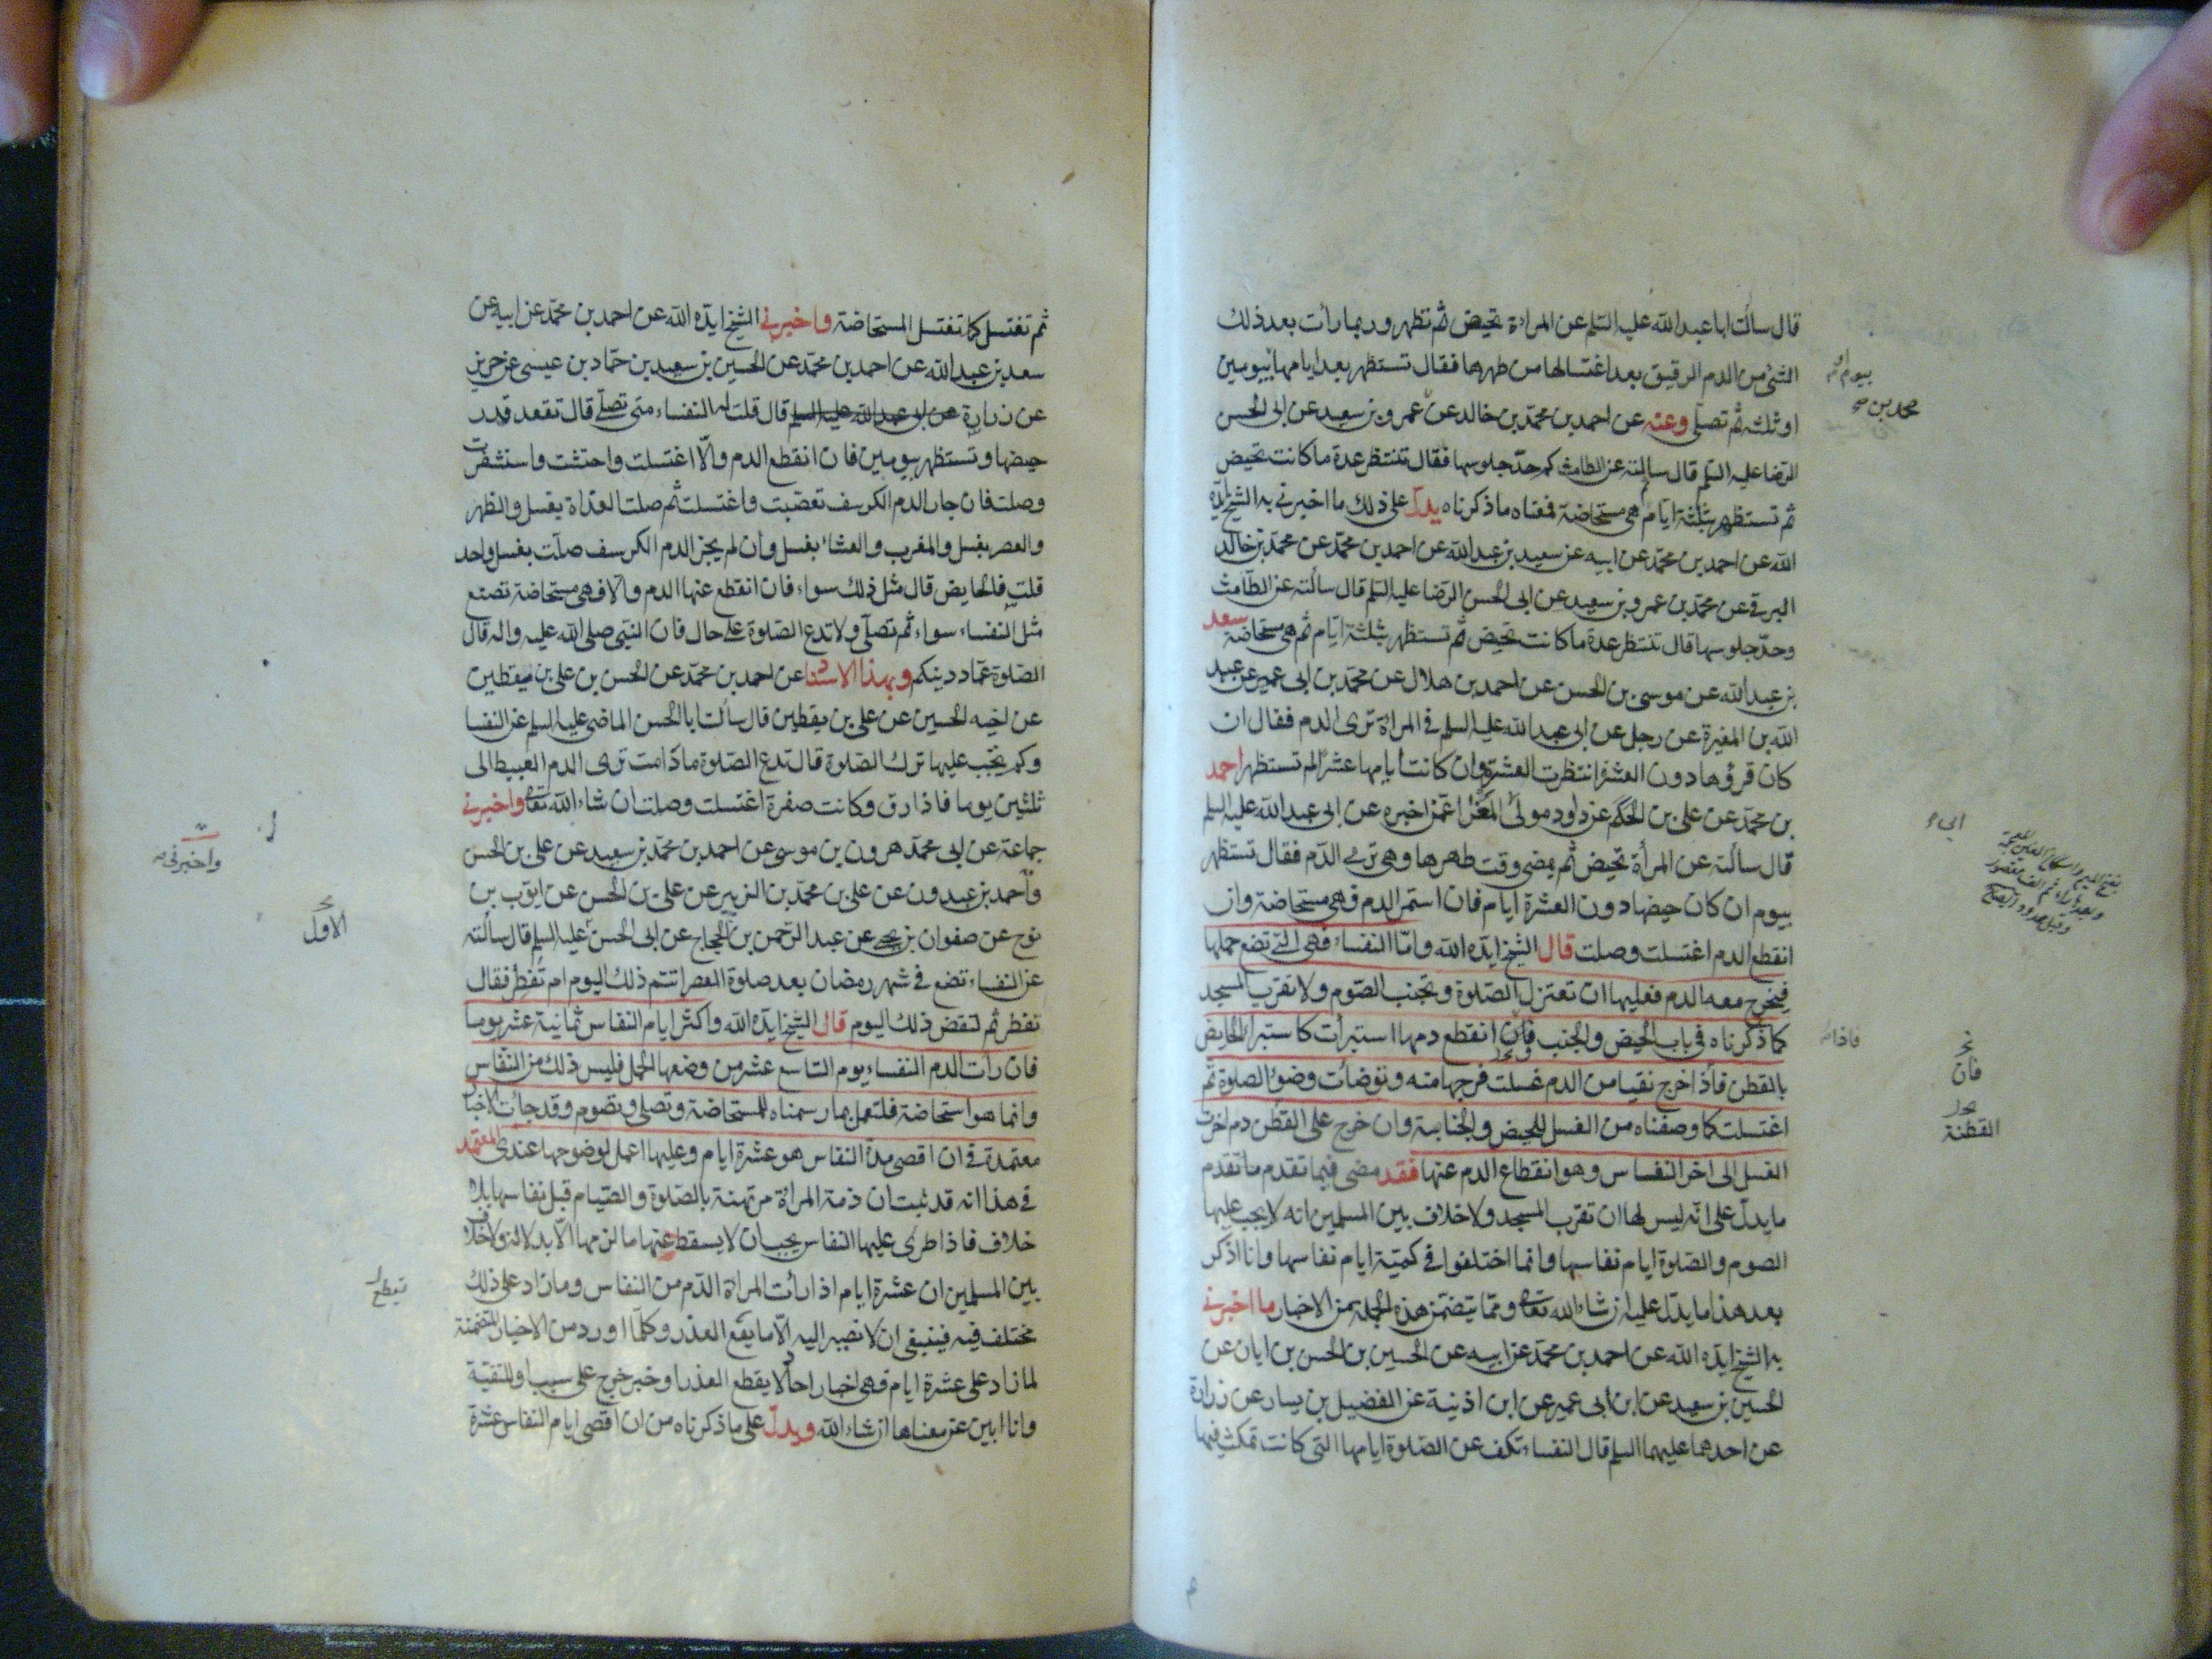 قال سألت ابا عبد الله عليه السلم عن المراة تحيض ثم تطهر وربما رأت بعد ذلك
الشئ من الدم الرقيق بعد اغتسالها من طهرها فقال تستظهر بعد ايامها بيومين
او ثلثة ثم تصلى وعنه عن احمد بن محمد بن خالد عن عمرو بن سعيد عن ابى الحسن
الرضا عليه السلم قال سالته عن الطامث كم حد جلوسها فقال تنتظر عدة ما كانت تحيض
ثم تستظهر بثلثة ايام ثم هى مستحاضة فمعناه ما ذكرناه يدل على ذلك ما اخبرنى به الشيخ ايده
الله عن احمد بن محمد عن ابيه عن سعيد بن عبد الله عن احمد بن محمد عن محمد بن خالد
البرقى عن محمد بن عمرو بن سعيد عن ابى الحسن الرضا عليه السلم قال سالته عن الطامث
وحد جلوسها قال تنتظر عدة ما كانت تحيض ثم تستظهر بثلثة ايام ثم هى مستحاضة سعد
بن عبد الله عن موسى بن الحسن عن احمد بن هلال عن محمد بن ابى عمير عن عبد
الله بن المغيرة عن رجل عن ابى عبد الله عليه السلم فى المراة ترى الدم فقال ان
كان قرؤها دون العشر انتظرت العشرة وان كانت ايامها عشرا لم تستظهر احمد
بن محمد عن على بن الحكم عن داود مولى المغرا عمن اخبره عن ابى عبد الله عليه السلم
قال سألته عن المرأة تحيض ثم يمضى وقت طهرها وهى ترى الدم فقال تستظهر
بيوم ان كان حيضها دون العشرة ايام فان استمر الدم فهى مستحاضة وان
انقطع الدم اغتسلت وصلت قال الشيخ ايده الله واما النفساء فهى التى تضع حملها
فيخرج معه الدم فعليها ان تعتزل الصلوة وتجتنب الصوم ولا تقرب المسجد
كما ذكرناه فى باب الحيض والجنب فان انقطع دمها استبرأت كاستبراء الحايض
بالقطن فاذا خرج نقيا من الدم غسلت فرجها منه وتوضأت وضوء الصلوة ثم
اغتسلت كما وصفناه من الغسل للحيض والجنابة وان خرج على القطن دم اخرت
الغسل الى اخر النفاس وهو انقطاع الدم عنها فقد مضى فيما تقدم ما تقدم
ما يدل على انه ليس لها ان تقرب المسجد ولا خلاف بين المسلمين انه لا يجب عليها
الصوم والصلوة ايام نفاسها وانما اختلفوا فى كمية ايام نفاسها وانا اذكر
بعد هذا ما يدل عليه ان شاء الله تعالى ومما يتضمن هذه الجملة من الاخبار ما اخبرنى
به الشيخ ايده الله عن احمد بن محمد عن ابيه عن الحسين بن الحسن بن ابان عن
الحسين بن سعيد عن ابن ابى عمير عن ابن اذينة عن الفضيل بن يسار عن زرارة
عن احدهما عليهما السلم قال النفساء تكف عن الصلوة ايامها التى كانت تمكث فيها
بيوم او
محمد بن صح
ابى
فاذا
فان
القطنة
ثم تغتسل كما تغتسل المستحاضة واخبرنى الشيخ ايده الله عن احمد بن محمد عن ابيه عن
سعد بن عبد الله عن احمد بن محمد عن الحسين بن سعيد بن حماد بن عيسى عن حريز
عن زرارة عن ابى عبد الله عليه السلم قال قلت له النفساء متى تصلى قال تقعد قدر
حيضها وتستظهر بيومين فان انقطع الدم والا اغتسلت واحتشت واستثفرت
وصلت فان جاز الدم الكرسف تعصبت واغتسلت ثم صلت الغداة بغسل والظهر
والعصر بغسل والمغرب والعشاء بغسل وان لم يجز الدم الكرسف صلت بغسل واحد
قلت فالحايض قال مثل ذلك سواء فان انقطع عنها الدم والا فهى مستحاضة تصنع
مثل النفساء سواء ثم تصلى ولا تدع الصلوة على حال فان النبى صلى الله عليه واله قال
الصلوة عماد دينكم وبهذا الاسناد عن احمد بن محمد عن الحسن بن على بن يقطين
عن اخيه الحسين عن على بن يقطين قال سألت ابا الحسن الماضى عليه السلم عن النفسا
وكم يجب عليها ترك الصلوة قال تدع الصلوة ما دامت ترى الدم العبيط الى
ثلثين يوما فاذا رق وكانت صفرة اغتسلت وصلت ان شاء الله تعالى واخبرنى
جماعة عن ابى محمد هرون بن موسى عن احمد بن محمد بن سعيد عن على بن الحسن
واحمد بن عبدون عن على بن محمد بن الزبير عن على بن الحسن عن ايوب بن
نوح عن صفوان بن يحيى عن عبد الرحمن بن الحجاج عن ابى الحسن عليه السلم قال سألته
عن النفساء تضع فى شهر رمضان بعد صلوة العصر اتتم ذلك اليوم ام تفطر فقال
تفطر ثم لتقض ذلك اليوم قال الشيخ ايده الله واكثر ايام النفاس ثمانية عشر يوما
فان رأت الدم النفساء يوم التاسع عشر من وضعها الحمل فليس ذلك من النفاس
وانما هو استحاضة فلتعمل بما رسمناه للمستحاضة وتصلى وتصوم وقد جأت الاخبار
معتمدة فى ان اقصى مدة النفاس هو عشرة ايام وعليها اعمل لوضوحها عندى المعتمد
فى هذا انه قد ثبت ان ذمة المراة مرتهنة بالصلوة والصيام قبل نفاسها بلا
خلاف فاذا طرى عليها النفاس يجب ان لا يسقط عنها ما لزمها الا بدلالة ولا خلاف
بين المسلمين ان عشرة ايام اذا رأت المراة الدم من النفاس وما زاد على ذلك
مختلف فيه فينبغى ان لا نصير اليه الا ما يقع العذر وكلما اورد من الاخبار المتضمنة
لما زاد على عشرة ايام فهى اخبار احاد لا يقطع العذر او خبر خرج على سبب او للتقية
وانا ابين عن معناها ان شاء الله ويدل على ما ذكرناه من ان اقصى ايام النفاس عشرة
واخبرنى
الاول